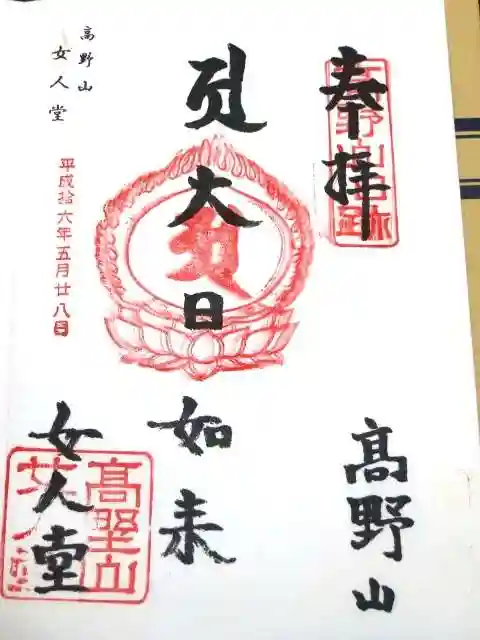 奉拝
高野山
大日如来
女人堂
高野山
女人堂
平成拾六年五月廿八日